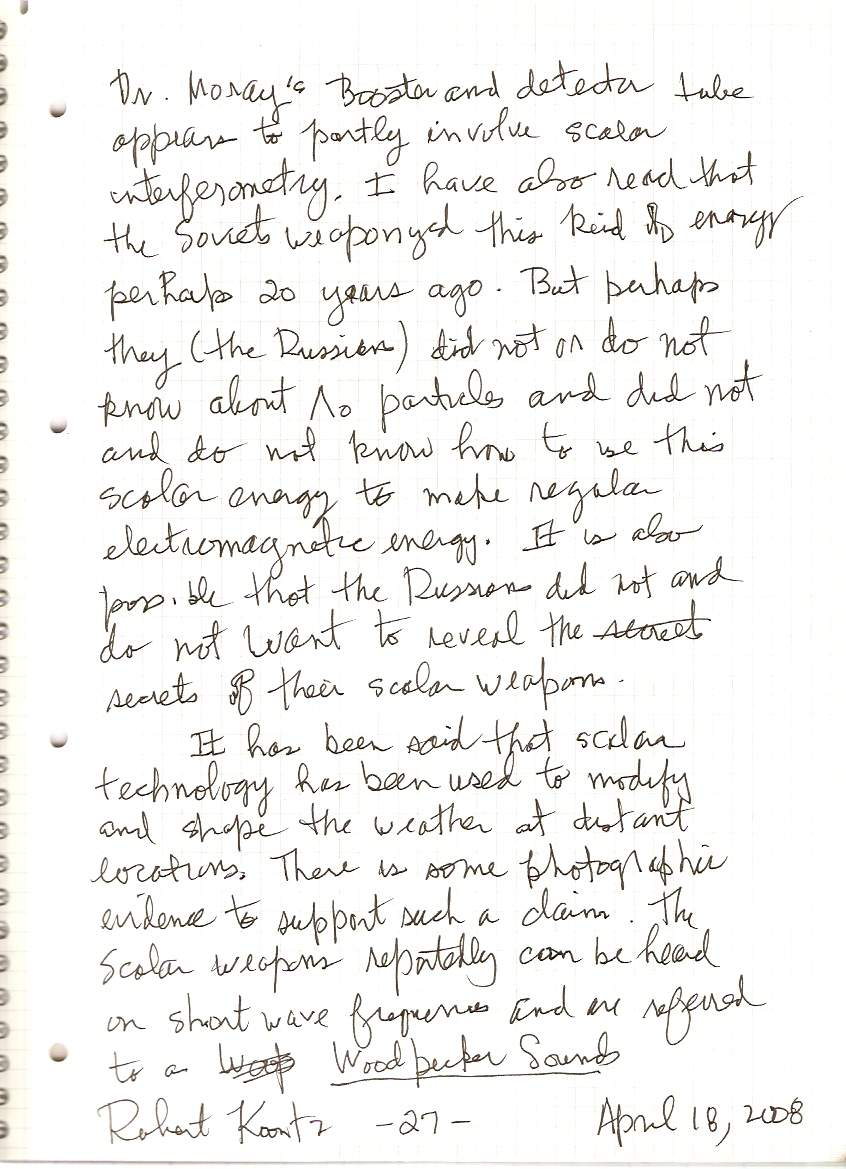 Dr. Moray's Booster and detector tube
appears to partly involve scalar
interferometry. I have also read that
the Soviets weaponyed this kind of energy
perhaps 20 years ago. But perhaps
they (the Russian) did not or do not
know about Λo particles and did not
and do not know how to use this
scalar energy to make regular
electromagnetic energy. It is also
possible that the Russians did not and
do not want to reveal the secret
secrets of their scalar weapons.
It has been said that scalar
technology has been used to modify
and shape the weather at distant
locations. There is some photographic
evidence to support such a claim. The
Scalar weapons reportably can be heard
on short wave frequencies and are referred
to a Woop Woodpecker Sounds
Robert Koontz -27- April 18, 2008